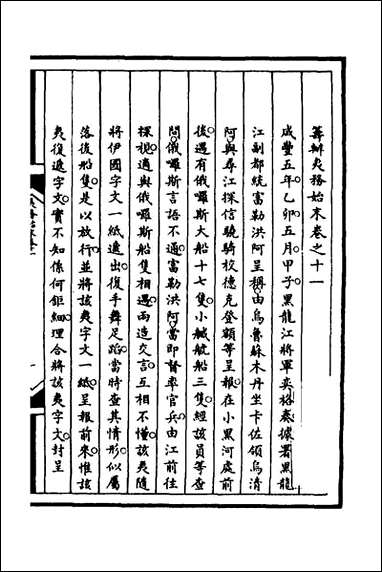 籌辦夷務始末卷之十一
咸豐五年乙卯五月甲子黑龍江將軍奕格奏據署黑龍
江副都統富勒洪阿呈稱由烏魯蘇木丹坐卡佐領烏清
阿與尋江探信驍騎校德克登額等呈報在小黑河處前
後遇有俄囉斯大船十七隻小鹹航船三隻經該員等查
問俄囉斯言語不通富勒洪阿當即督率官兵由江前往
裸視適與俄囉斯船隻相遇兩造交言互相不懂該夷隨
將伊國字文一紙遞出復手舞足蹈當時查其情形似屬
落後船隻是以放行並將該夷字文一紙呈報前來惟該
夷復遞字文實不知係何鉅細理合將該夷字文封呈